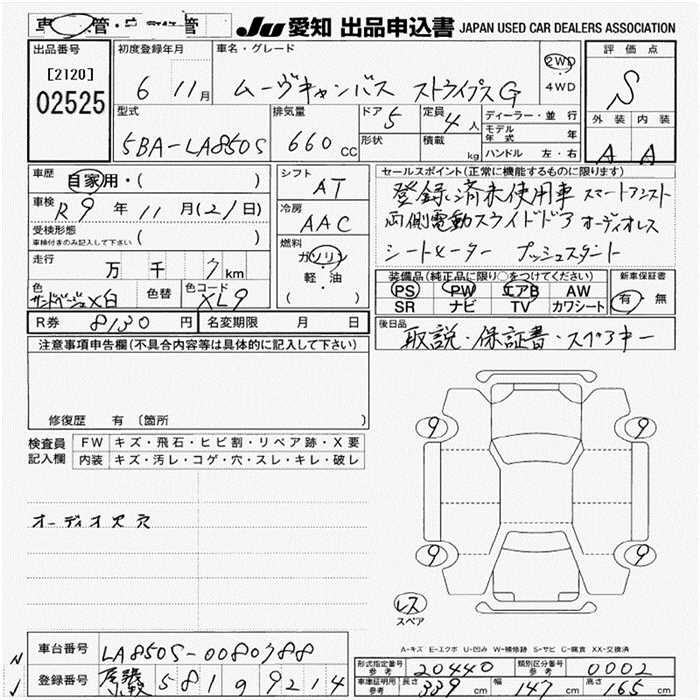 JU 愛知 出品申込書 JAPAN USED CAR DEALERS ASSOCIATION
出品番号
[2120]
02525
初度登録年月
6 11月
車名・グレード
ムーヴキャンバス ストライプスG
2WD
4WD
評価点
S
外装 内装
A A
型式
5BA-LA850S
排気量
660 CC
ドア 5
形状
定員 4人
積載 kg
ディーラー・並行
モデル年式 年
ハンドル 左・右
車歴 自家用・( )
車検 R9年11月(21日)
受検形態
車検付きのみ記入して下さい ( )
走行 万 千 7km
色 サンドベージュ×白
色替
色コード XL9
シフト AT
冷房 AAC
燃料 ガソリン
軽・油
( )
R券 8130円
名変期限 月 日
セールスポイント(正常に機能するものに限ります)
登録済未使用車 スマートアシスト
両側電動スライドドア オーディオレス
シートヒーター プッシュスタート
装備品(純正品に限り○をつけてください)
PS PW エアB AW
SR ナビ TV カワシート
新車保証書
有・無
後日品
取説・保証書・スペアキー
注意事項申告欄(不具合内容等は具体的に記入して下さい)
修復歴 有〔箇所 〕
検査員記入欄
FW キズ・飛石・ヒビ割・リペア跡・X要
内装 キズ・汚レ・コゲ・穴・スレ・キレ・破レ
オーディオ穴
9 9
9 9
レス
スペア
A-キズ E-エクボ U-凹み W-補修跡 S-サビ C-腐食 XX-交換済
車台番号 LA850S-0080788
登録番号 尾張小牧 581 9214
型式指定番号 参考 20440
類別区分番号 参考 0002
車庫証明用 参考 長さ 339cm 幅 147cm 高さ 165cm